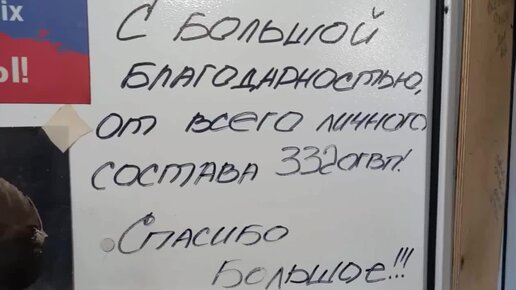 ix
Ы!
С БОЛЬШОЙ
БЛАГОДАРНОСТЬЮ,
ОТ ВСЕГО ЛИЧНОГО
СОСТАВА 332огвп!
СПАСИБО
БОЛЬШОЕ!!!